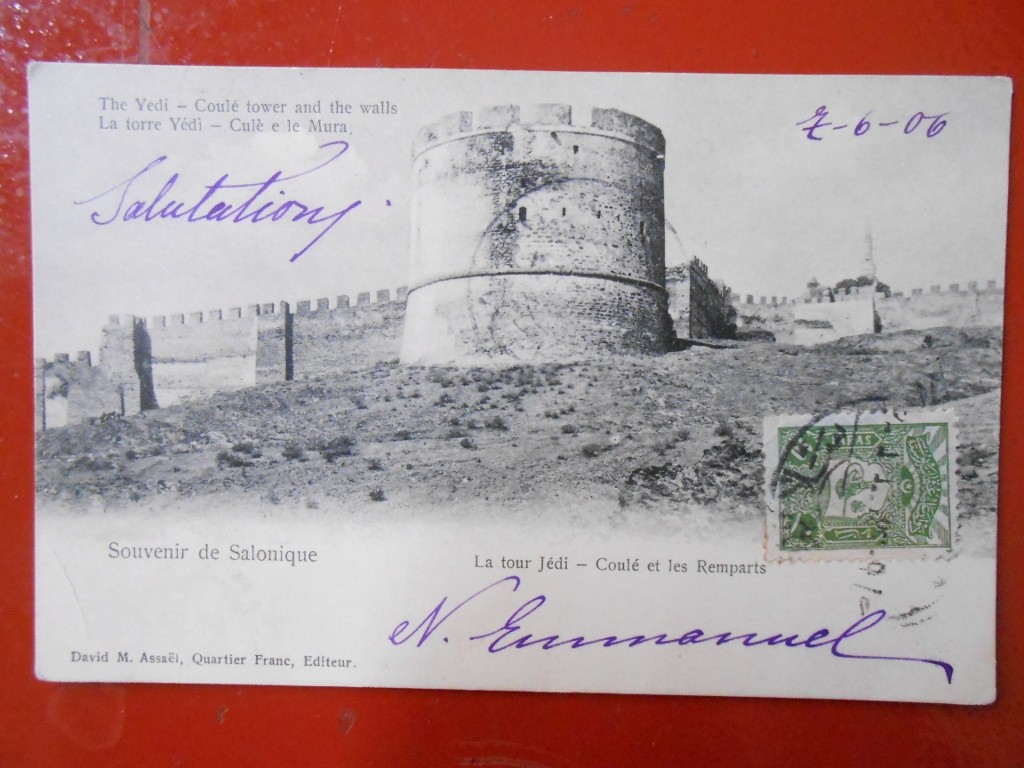 The Yedi – Coulé tower and the walls
La torre Yédì – Culè e le Mura.
7-6-06
Salutations.
Souvenir de Salonique
La tour Jédi – Coulé et les Remparts
N. Emmanuel
David M. Assaël, Quartier Franc, Editeur.